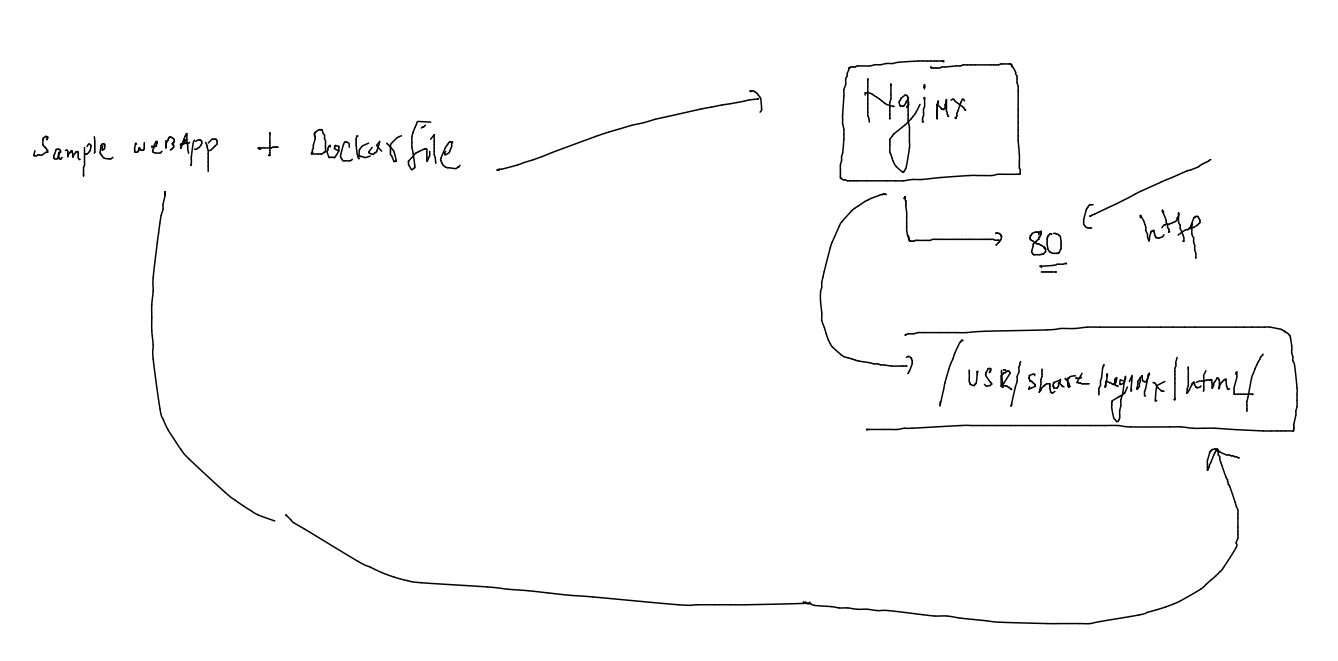 Sample weBApp + Dockerfile
Nginx
80
http
/usR/share/nginx/html/